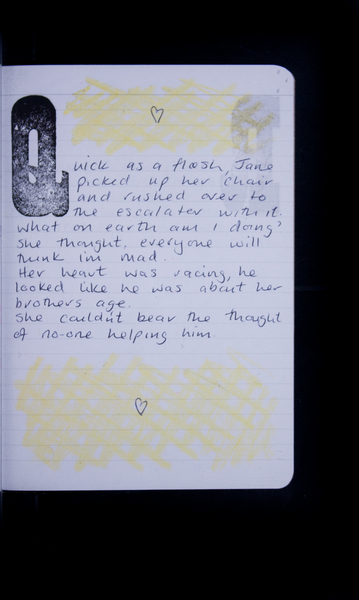 Quick as a flash, Jane
picked up her chair
and rushed over to
the escalater with it.
what on earth am I doing?
she thought. everyone will
think im mad.
Her heart was racing, he
looked like he was about her
brothers age.
She couldnt bear the thought
of no-one helping him.